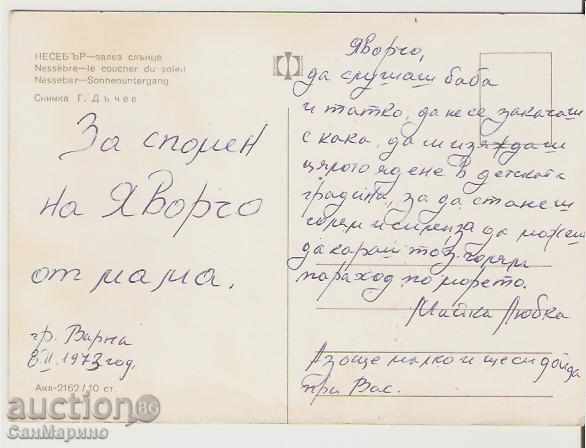 НЕСЕБЪР—залез слънце
Nessèbre—le coucher du soleil
Nessebar—Sonnenuntergang
Снимка Г. Дъчев
За спомен
на Яворчо
от мама.
гр. Варна
8.II.1973 год.
Акл-2162/10 ст.
Яворчо,
да слушаш баба
и татко, да не се закачаш
с кака, да ми изяждаш
цялото ядене в детската
градина, за да станеш
голям и силен за да можеш
да караш този голям
параход по морето.
Майка Любка
Аз още малко и ще си дойда
при Вас.
auction BG
СанМарино